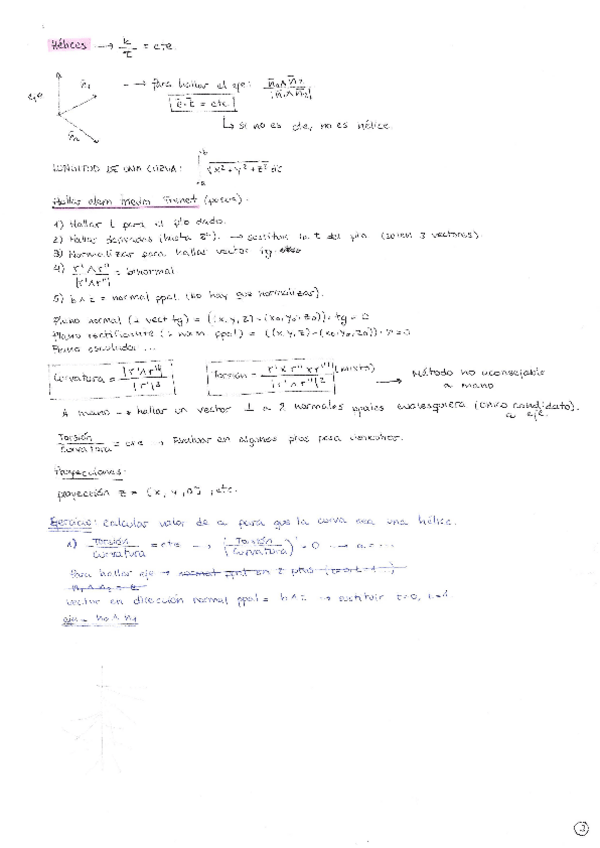 Hélices → k/τ = cte.
eje n̄₁ → Para hallar el eje: n̄₁∧n̄₂/|n̄₁∧n̄₂|
ē·t̄ = cte
n̄₂ ↳ si no es cte, no es hélice
LONGITUD DE UNA CURVA:
Hallar elem
1) Hallar t para el pto dado.
2) Hallar derivadas (hasta 2ª). → sustituir la t del pto (salen 3 vectores).
3) Normalizar para hallar vector tg.
4) r'∧r''/|r'∧r''| = binormal
5) b∧t = normal ppal (no hay que normalizar).
Plano normal (⊥ vect tg) = ((x,y,z)-(x₀,y₀,z₀))·tg = 0
Plano rectificante (⊥ norm. ppal) = ((x,y,z)-(x₀,y₀,z₀))·n = 0
Plano osculador ...
Curvatura = |r'∧r''|/|r'|³ Torsión = r'×r''×r'''/|r'∧r''|² (mixto) → Método no aconsejable
a mano
A mano → hallar un vector ⊥ a 2 normales ppales cualesquiera (único candidato).
a eje.
Torsión/Curvatura = cte → Evaluar en algunos ptos para
Proyecciones:
proyección z = (x, y, 0), etc.
Ejercicio: calcular valor de a para que la curva sea una hélice.
a) Torsión/Curvatura = cte → (Torsión/Curvatura)' = 0 → a = ...
Para hallar eje →
vector en dirección normal ppal = b∧t → sustituir t=0, t=1
eje = n₀∧n₁
3